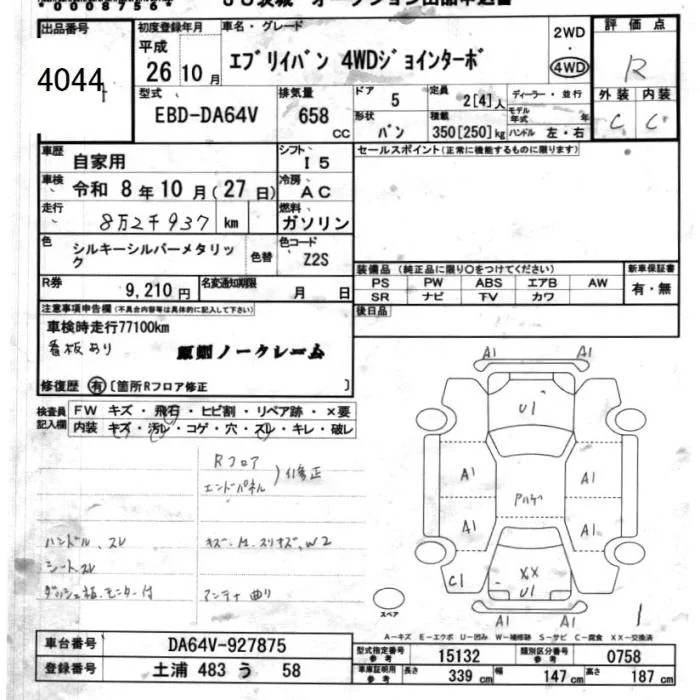 出品番号
4044
初度登録年月
平成
26年10月
車名・グレード
エブリイバン 4WDジョインターボ
2WD
・
4WD
評価点
R
外装 内装
C C
型式
EBD-DA64V
排気量
658
cc
ドア
5
形状
バン
定員
2[4]人
積載
350[250]kg
ディーラー・並行
モデル年式 年
ハンドル 左・右
車歴
自家用
シフト
I5
セールスポイント(正常に機能するものに限ります)
車検
令和 8年10月(27日)
冷房
AC
走行
8万2千937 km
燃料
ガソリン
色
シルキーシルバーメタリック
色替
色コード
Z2S
装備品(純正品に限り○をつけてください)
PS PW ABS エアB AW
SR ナビ TV カワ
新車保証書
有・無
R券
9,210円
名変通知期限
月 日
後日品
注意事項申告欄(不具合内容等は具体的に記入して下さい)
車検時走行77100km
看板あり
ノークレーム
修復歴 有 〔箇所Rフロア修正 〕
検査員記入欄
FW キズ・飛石・ヒビ割・リペア跡・×要
内装 キズ・汚レ・コゲ・穴・スレ・キレ・破レ
Rフロア
エンドパネル
)修正
ハンドル、スレ
シートスレ
ダッシュ板、モニター付
キズ・凹・スリキズ、W2
アンテナ曲り
A1 A1
U1
A1 A1
アハゲ
A1 A1
C1
XX
U1
A1 A1
スペア
1
A-キズ E-エクボ U-凹み W-補修跡 S-サビ C-腐食 XX-交換済
車台番号
DA64V-927875
登録番号
土浦 483 う 58
型式指定番号
参考
15132
類別区分番号
参考
0758
車庫証明用
参考
長さ 339 cm
幅 147 cm
高さ 187 cm